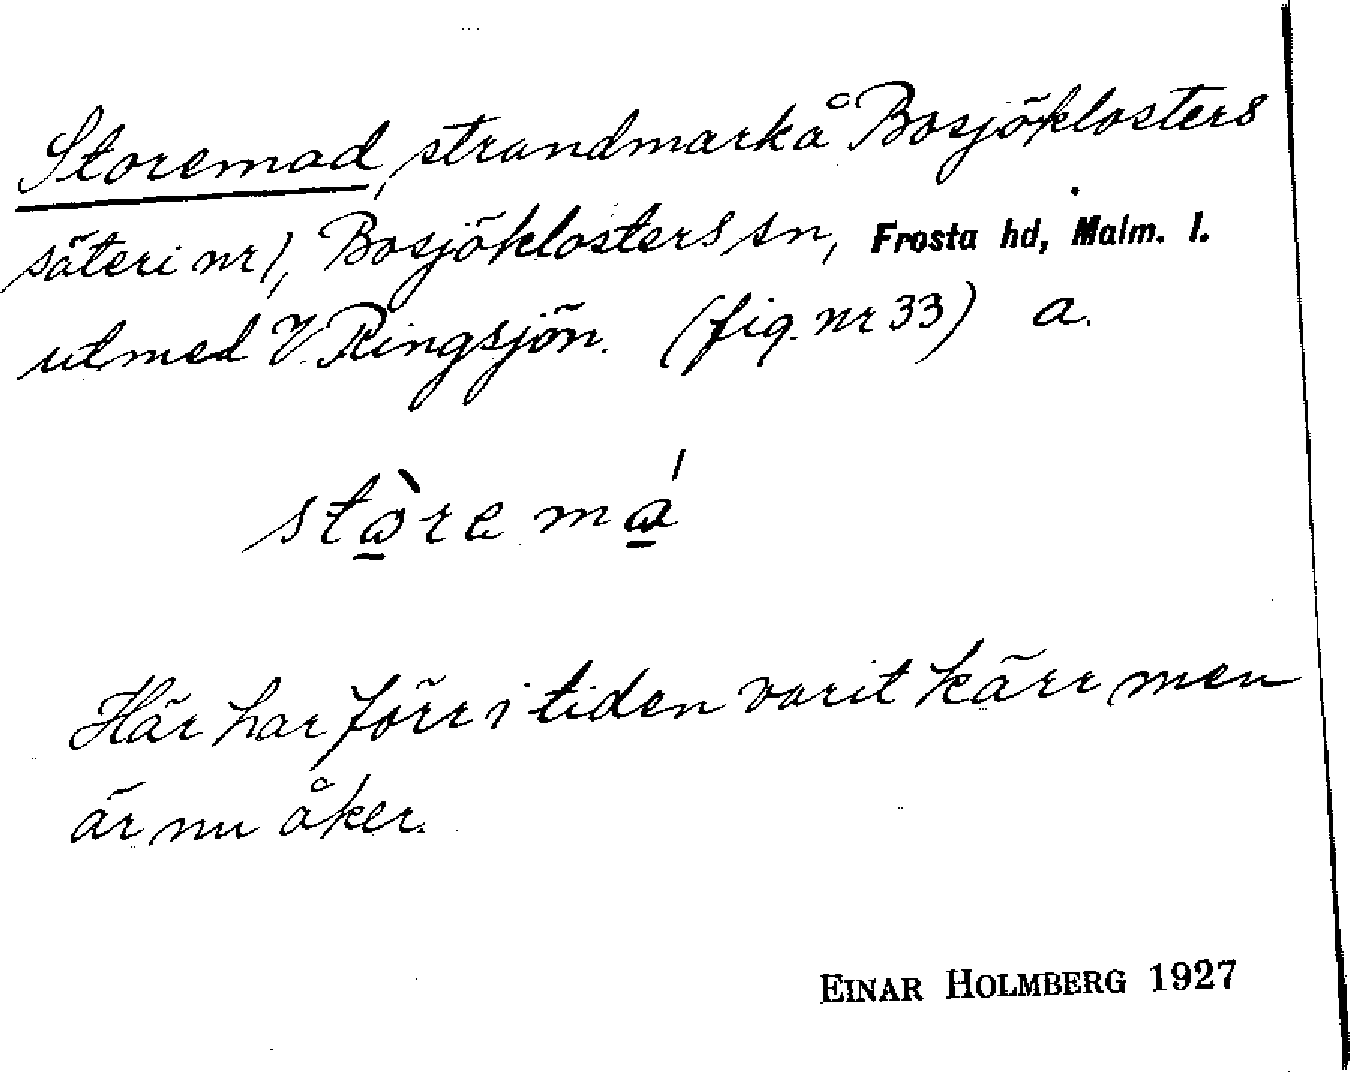 Storemad, strandmark å Bosjöklosters
säteri nr 1, Bosjöklosters sn, Frosta hd, Malm. l.
utmed V. Ringsjön. (fig. nr 33) a.
Här har förr i tiden varit kärr men
är nu åker.
EINAR HOLMBERG 1927